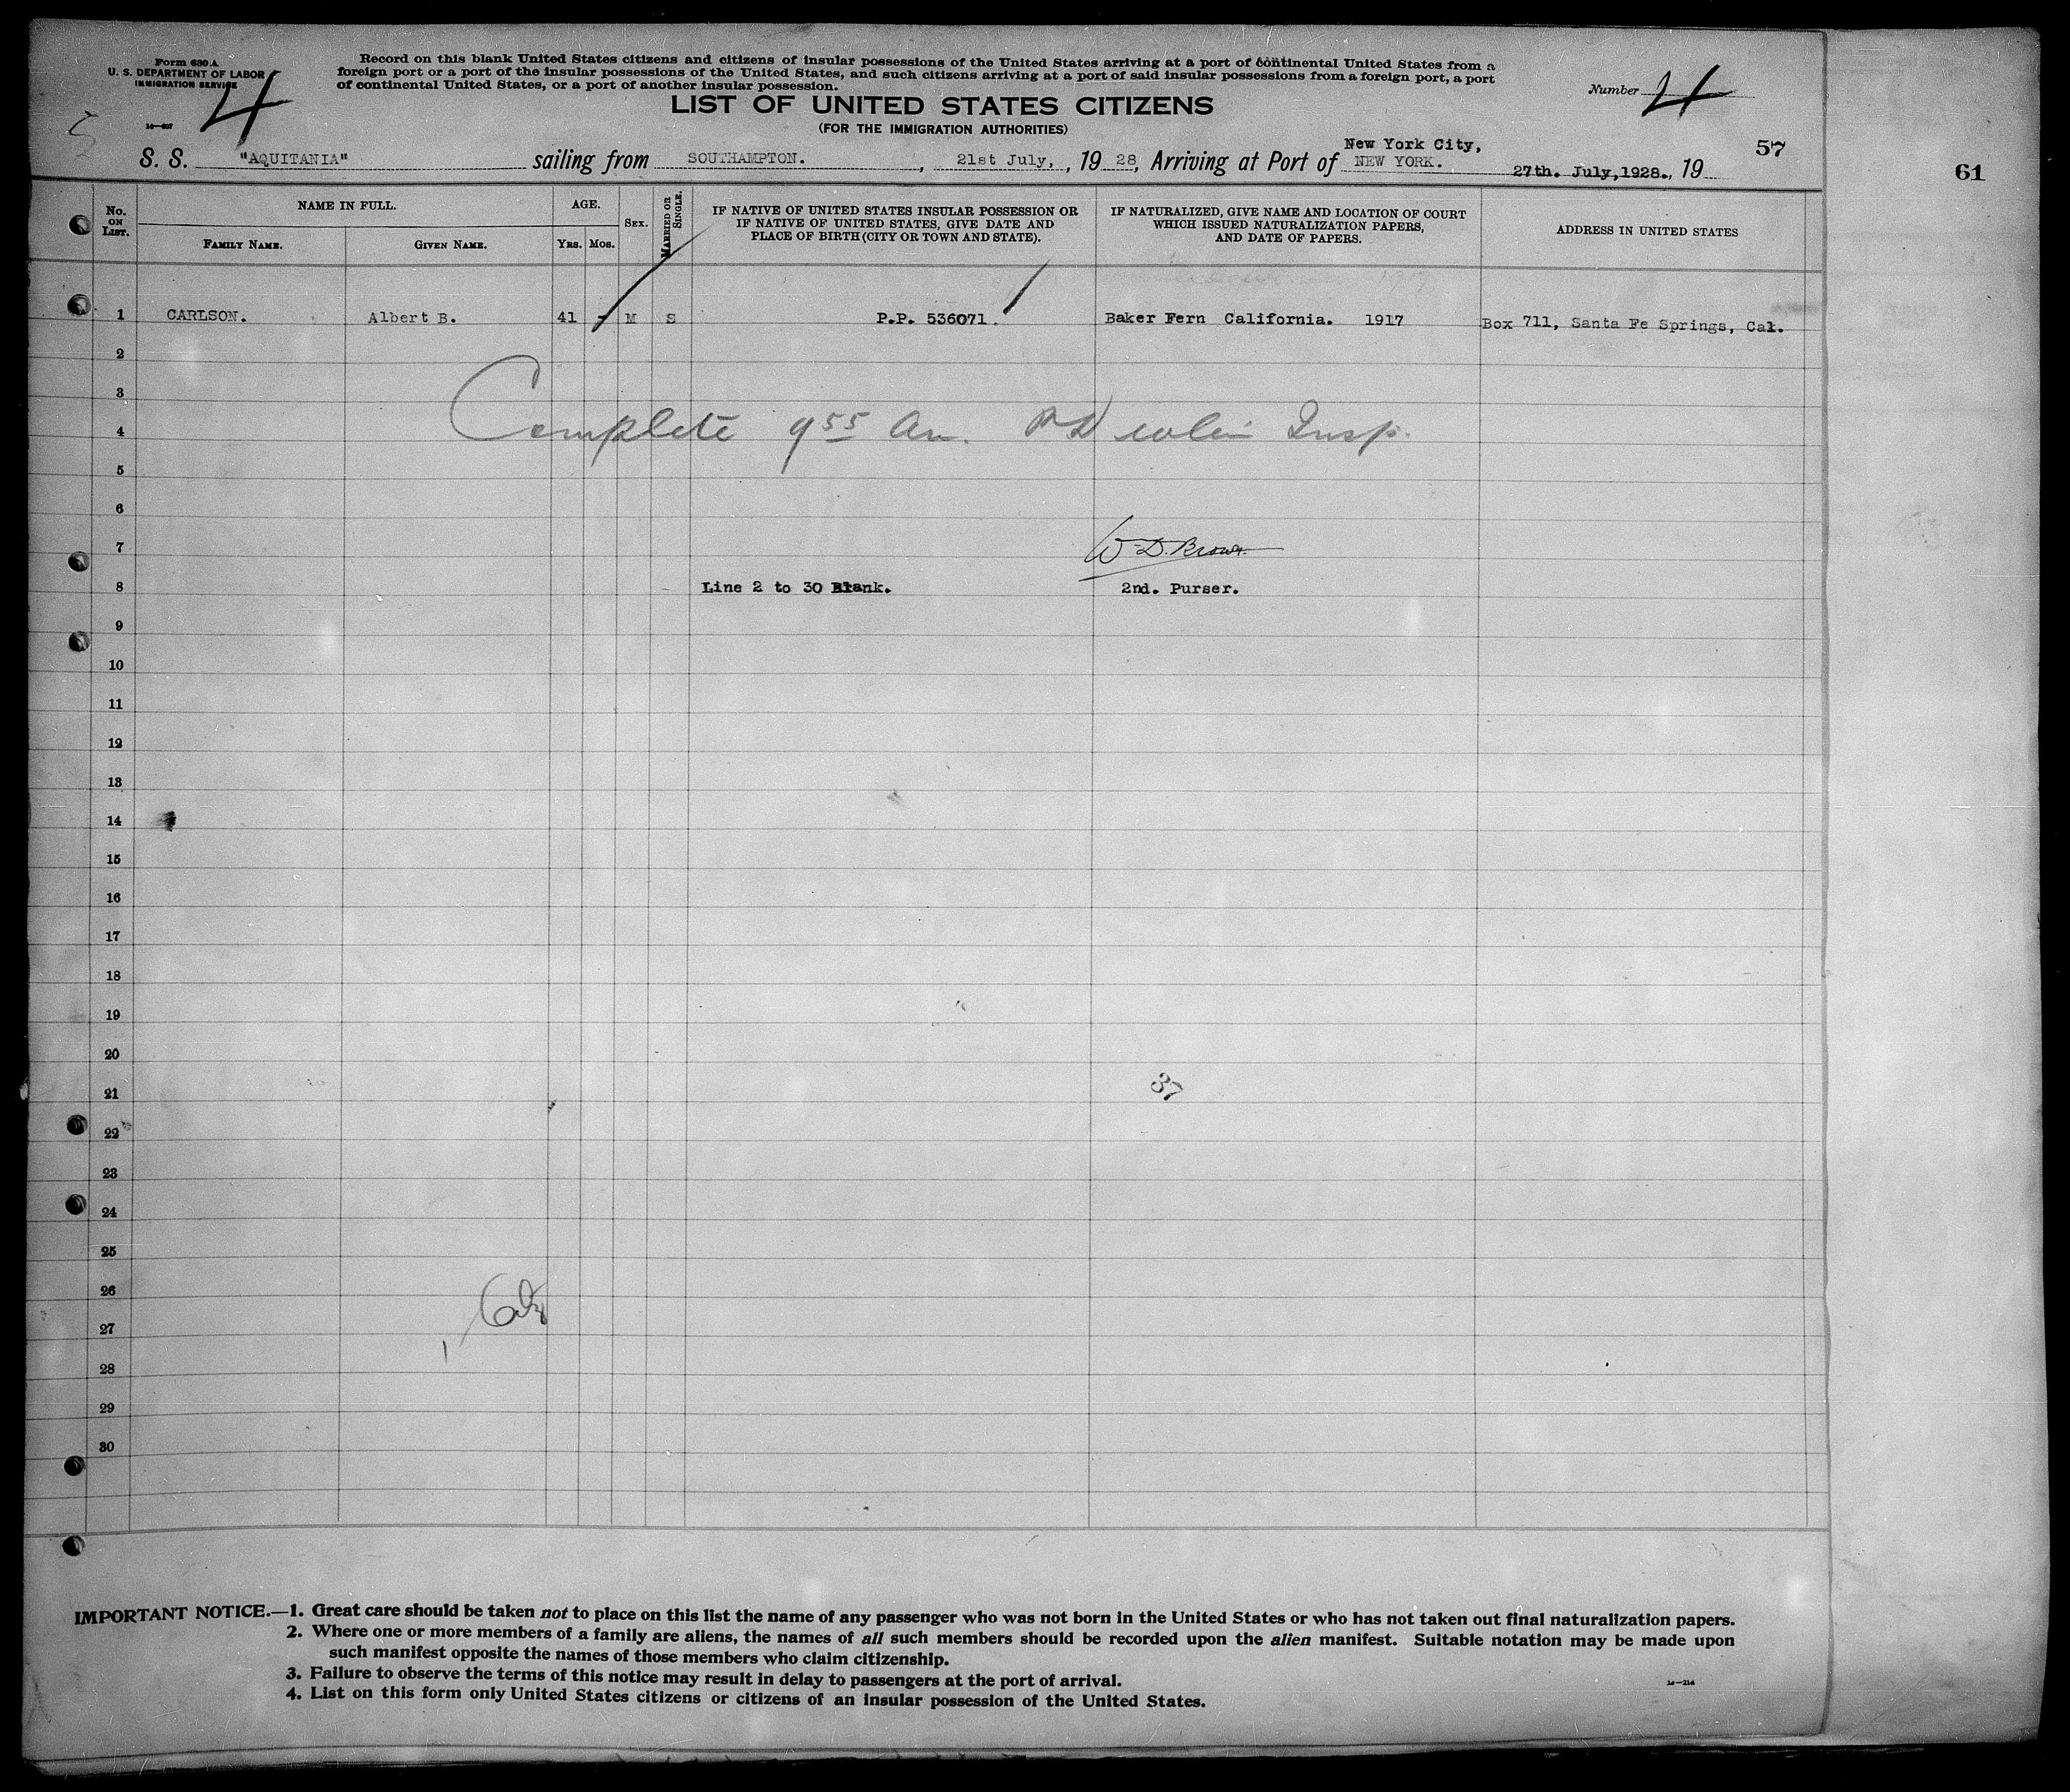 Form 630 A
U. S. DEPARTMENT OF LABOR
IMMIGRATION SERVICE
4
Record on this blank United States citizens and citizens of insular possessions of the United States arriving at a port of continental United States from a
foreign port or a port of the insular possessions of the United States, and such citizens arriving at a port of said insular possessions from a foreign port, a port
of continental United States, or a port of another insular possession.
Number 4
LIST OF UNITED STATES CITIZENS
(FOR THE IMMIGRATION AUTHORITIES)
57
61
S. S. "AQUITANIA" sailing from SOUTHAMPTON. , 21st July, , 19 28, Arriving at Port of New York City, NEW YORK. 27th. July,1928., 19
No. ON LIST.
NAME IN FULL.
FAMILY NAME.
GIVEN NAME.
AGE.
YRS.
MOS.
SEX.
MARRIED OR SINGLE.
IF NATIVE OF UNITED STATES INSULAR POSSESSION OR
IF NATIVE OF UNITED STATES, GIVE DATE AND
PLACE OF BIRTH (CITY OR TOWN AND STATE).
IF NATURALIZED, GIVE NAME AND LOCATION OF COURT
WHICH ISSUED NATURALIZATION PAPERS,
AND DATE OF PAPERS.
ADDRESS IN UNITED STATES
1 CARLSON. Albert B. 41 - M S P.P. 536071. Baker Fern California. 1917 Box 711, Santa Fe Springs, Cal.
2
3
4 Complete 9 55 Am. Insp.
5
6
7 W. D. Brown
8 Line 2 to 30 Blank. 2nd. Purser.
9
10
11
12
13
14
15
16
17
18
19
20
21 37
22
23
24
25
26
27
28
29
30
IMPORTANT NOTICE.—1. Great care should be taken not to place on this list the name of any passenger who was not born in the United States or who has not taken out final naturalization papers.
2. Where one or more members of a family are aliens, the names of all such members should be recorded upon the alien manifest. Suitable notation may be made upon
such manifest opposite the names of those members who claim citizenship.
3. Failure to observe the terms of this notice may result in delay to passengers at the port of arrival.
4. List on this form only United States citizens or citizens of an insular possession of the United States.